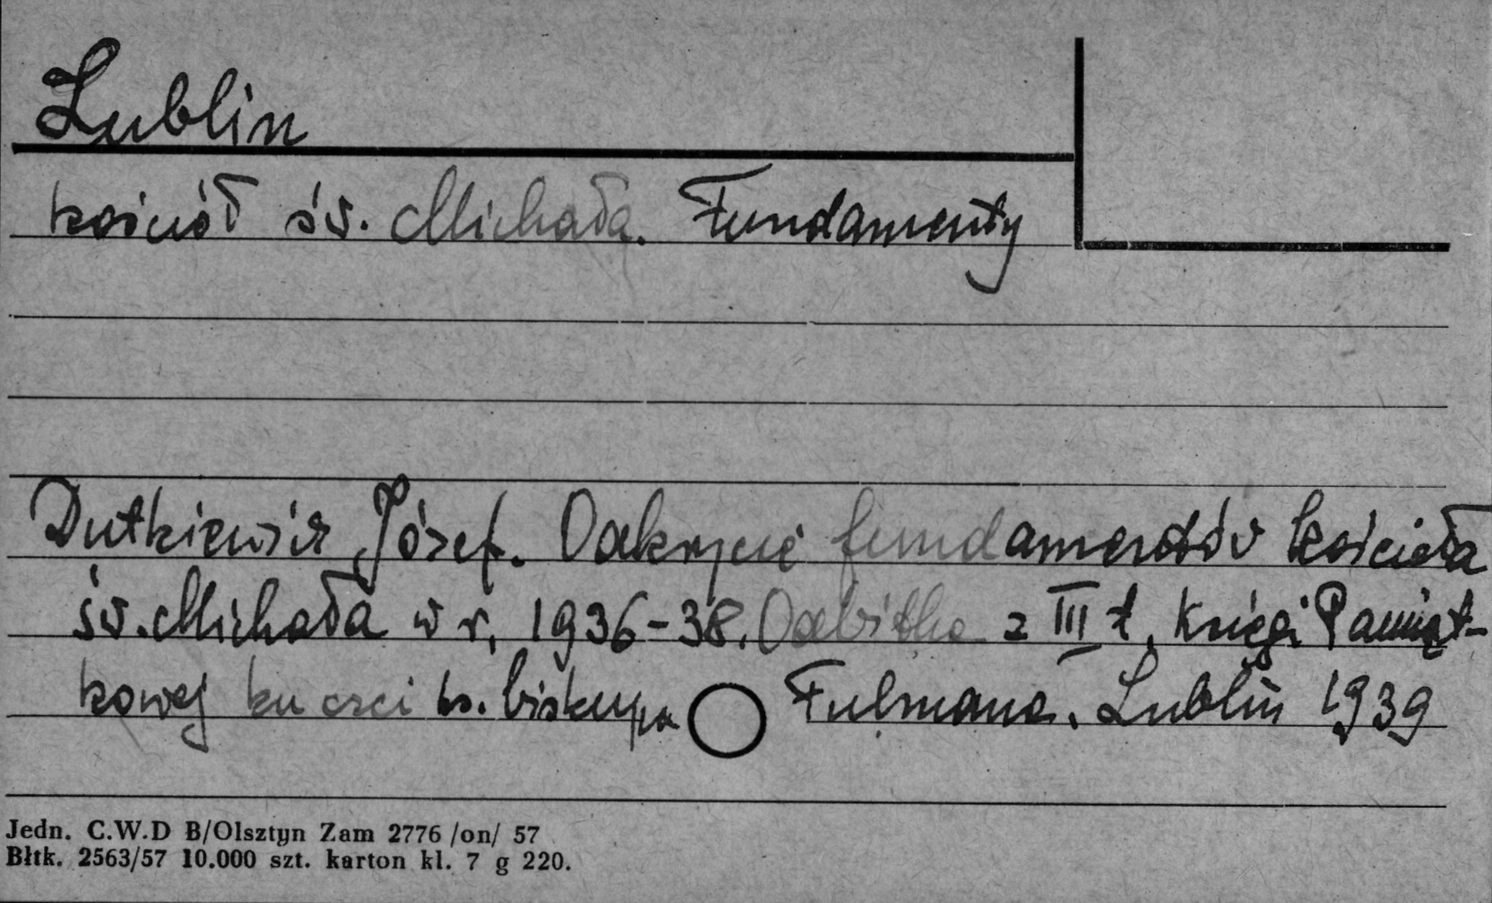 Lublin
kościół św. Michała. Fundamenty
Dutkiewicz Józef. Odkrycie fundamentów kościoła
św. Michała w r. 1936-38. Odbitka z III t. Księgi Pamiąt-
kowej ku czci ks. biskupa Fulmana. Lublin 1939
Jedn. C.W.D B/Olsztyn Zam 2776 /on/ 57
Błtk. 2563/57 10.000 szt. karton kl. 7 g 220.